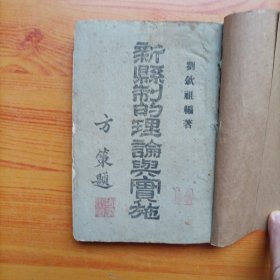 劉敘祖編著
新縣制的理論與實施
方策題